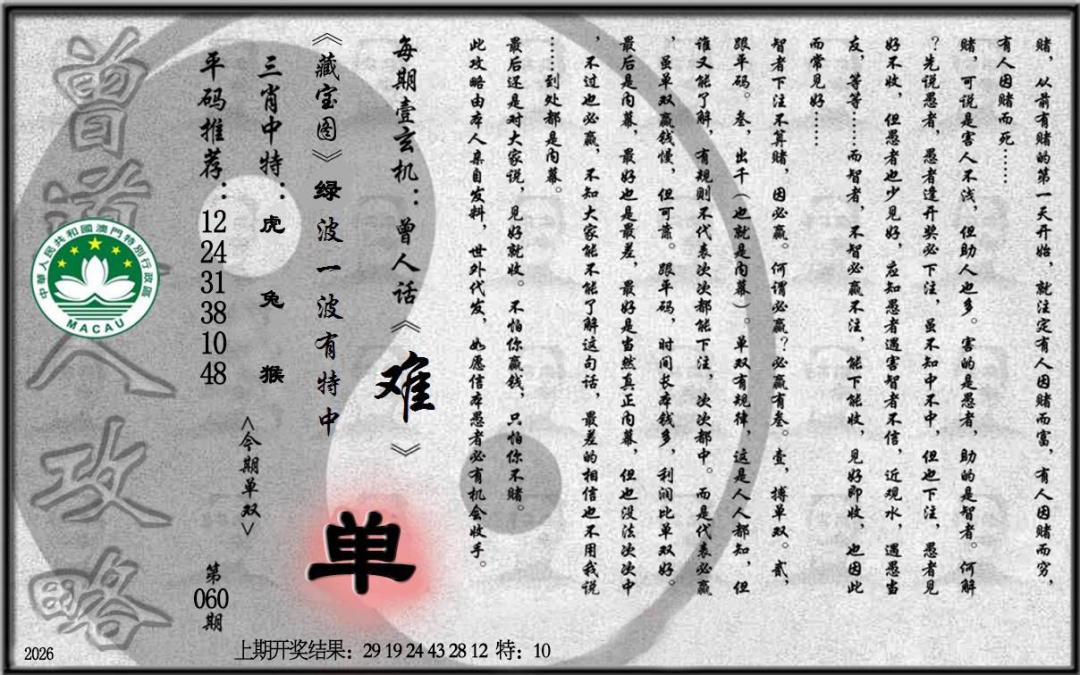 赌，从前有赌的第一天开始，就注定有人因赌而富，有人因赌而穷，
有人因赌而死……
赌，可说是害人不浅，但助人也多。害的是愚者，助的是智者。何解
？先说愚者，愚者逢开奖必下注，虽不知中不中，但也下注，愚者见
好不收，但愚者也少见好，应知愚者遇害智者不信，近观水，遇愚当
友，等等……而智者，不智必赢不注，能下能收，见好即收，也因此
而常见好……
智者下注不算赌，因必赢。何谓必赢？必赢有叁。壹，搏单双。贰，
跟单码。叁，出千（也就是内幕）。单双有规律，这是人人都知，但
谁又能了解，有规则不代表次次都能下注，次次都中。而是代表必赢
，虽单双赢钱慢，但可靠。跟单码，时间长本钱多，利润比单双好。
最后是内幕，最好也是最差，最好是当然真正内幕，但也没法次次中
，不过也必赢，不知大家能不能了解这句话，最差的相信也不用我说
……到处都是内幕。
最后还是对大家说，见好就收。不怕你赢钱，只怕你不赌。
此攻略由本人亲自发料，世外代发，如愿信本愚者必有机会收手。
每期壹玄机：曾人话《难》
《藏宝图》绿波一波有特中
单
三肖中特：虎 兔 猴
<今期单双>
平码推荐：12 24 31 38 10 48
第060期
曾道人攻略
中華人民共和國澳門特別行政區
MACAU
2026
上期开奖结果：29 19 24 43 28 12 特：10